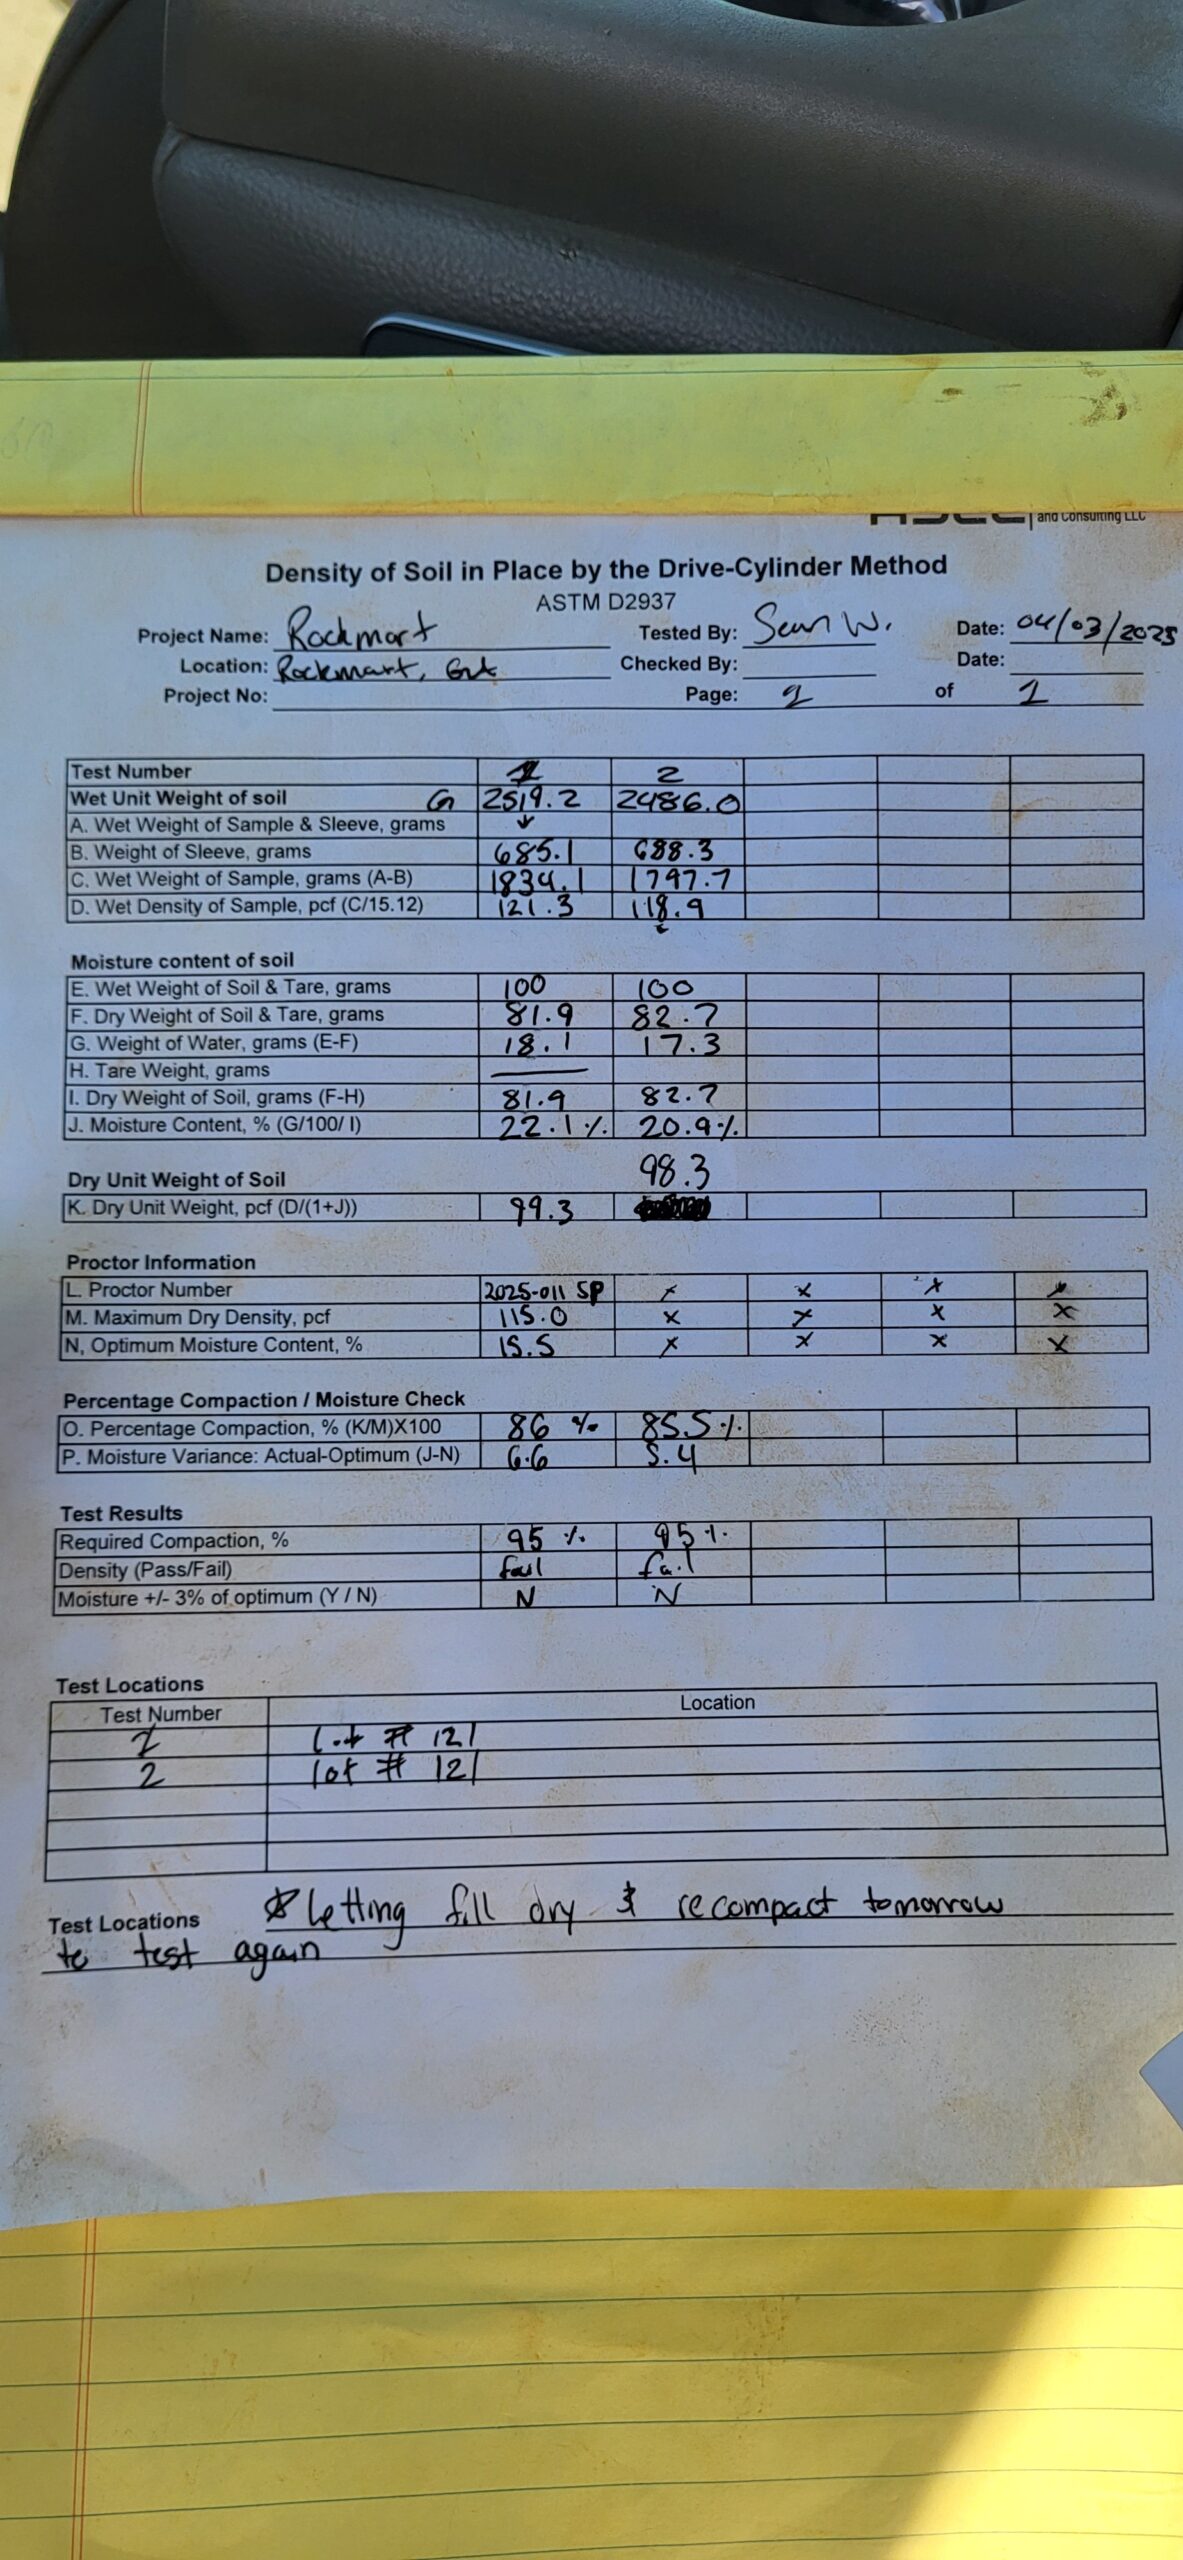 and Consulting LLC
Density of Soil in Place by the Drive-Cylinder Method
ASTM D2937
Project Name: Rockmart Tested By: Sean W. Date: 04/03/2025
Location: Rockmart, GA Checked By: Date:
Project No: Page: 1 of 1
Test Number 1 2
Wet Unit Weight of soil G 2519.2 2486.0
A. Wet Weight of Sample & Sleeve, grams ↓
B. Weight of Sleeve, grams 685.1 688.3
C. Wet Weight of Sample, grams (A-B) 1834.1 1797.7
D. Wet Density of Sample, pcf (C/15.12) 121.3 118.9
Moisture content of soil
E. Wet Weight of Soil & Tare, grams 100 100
F. Dry Weight of Soil & Tare, grams 81.9 82.7
G. Weight of Water, grams (E-F) 18.1 17.3
H. Tare Weight, grams —
I. Dry Weight of Soil, grams (F-H) 81.9 82.7
J. Moisture Content, % (G/100/ I) 22.1% 20.9%
98.3
Dry Unit Weight of Soil
K. Dry Unit Weight, pcf (D/(1+J)) 99.3
Proctor Information
L. Proctor Number 2025-011 SP x x x x
M. Maximum Dry Density, pcf 115.0 x x x x
N, Optimum Moisture Content, % 15.5 x x x x
Percentage Compaction / Moisture Check
O. Percentage Compaction, % (K/M)X100 86 % 85.5%
P. Moisture Variance: Actual-Optimum (J-N) 6.6 5.4
Test Results
Required Compaction, % 95 % 95%
Density (Pass/Fail) fail fail
Moisture +/- 3% of optimum (Y / N) N N
Test Locations
Test Number Location
1 lot # 121
2 lot # 121
Test Locations * letting fill dry & recompact tomorrow
to test again